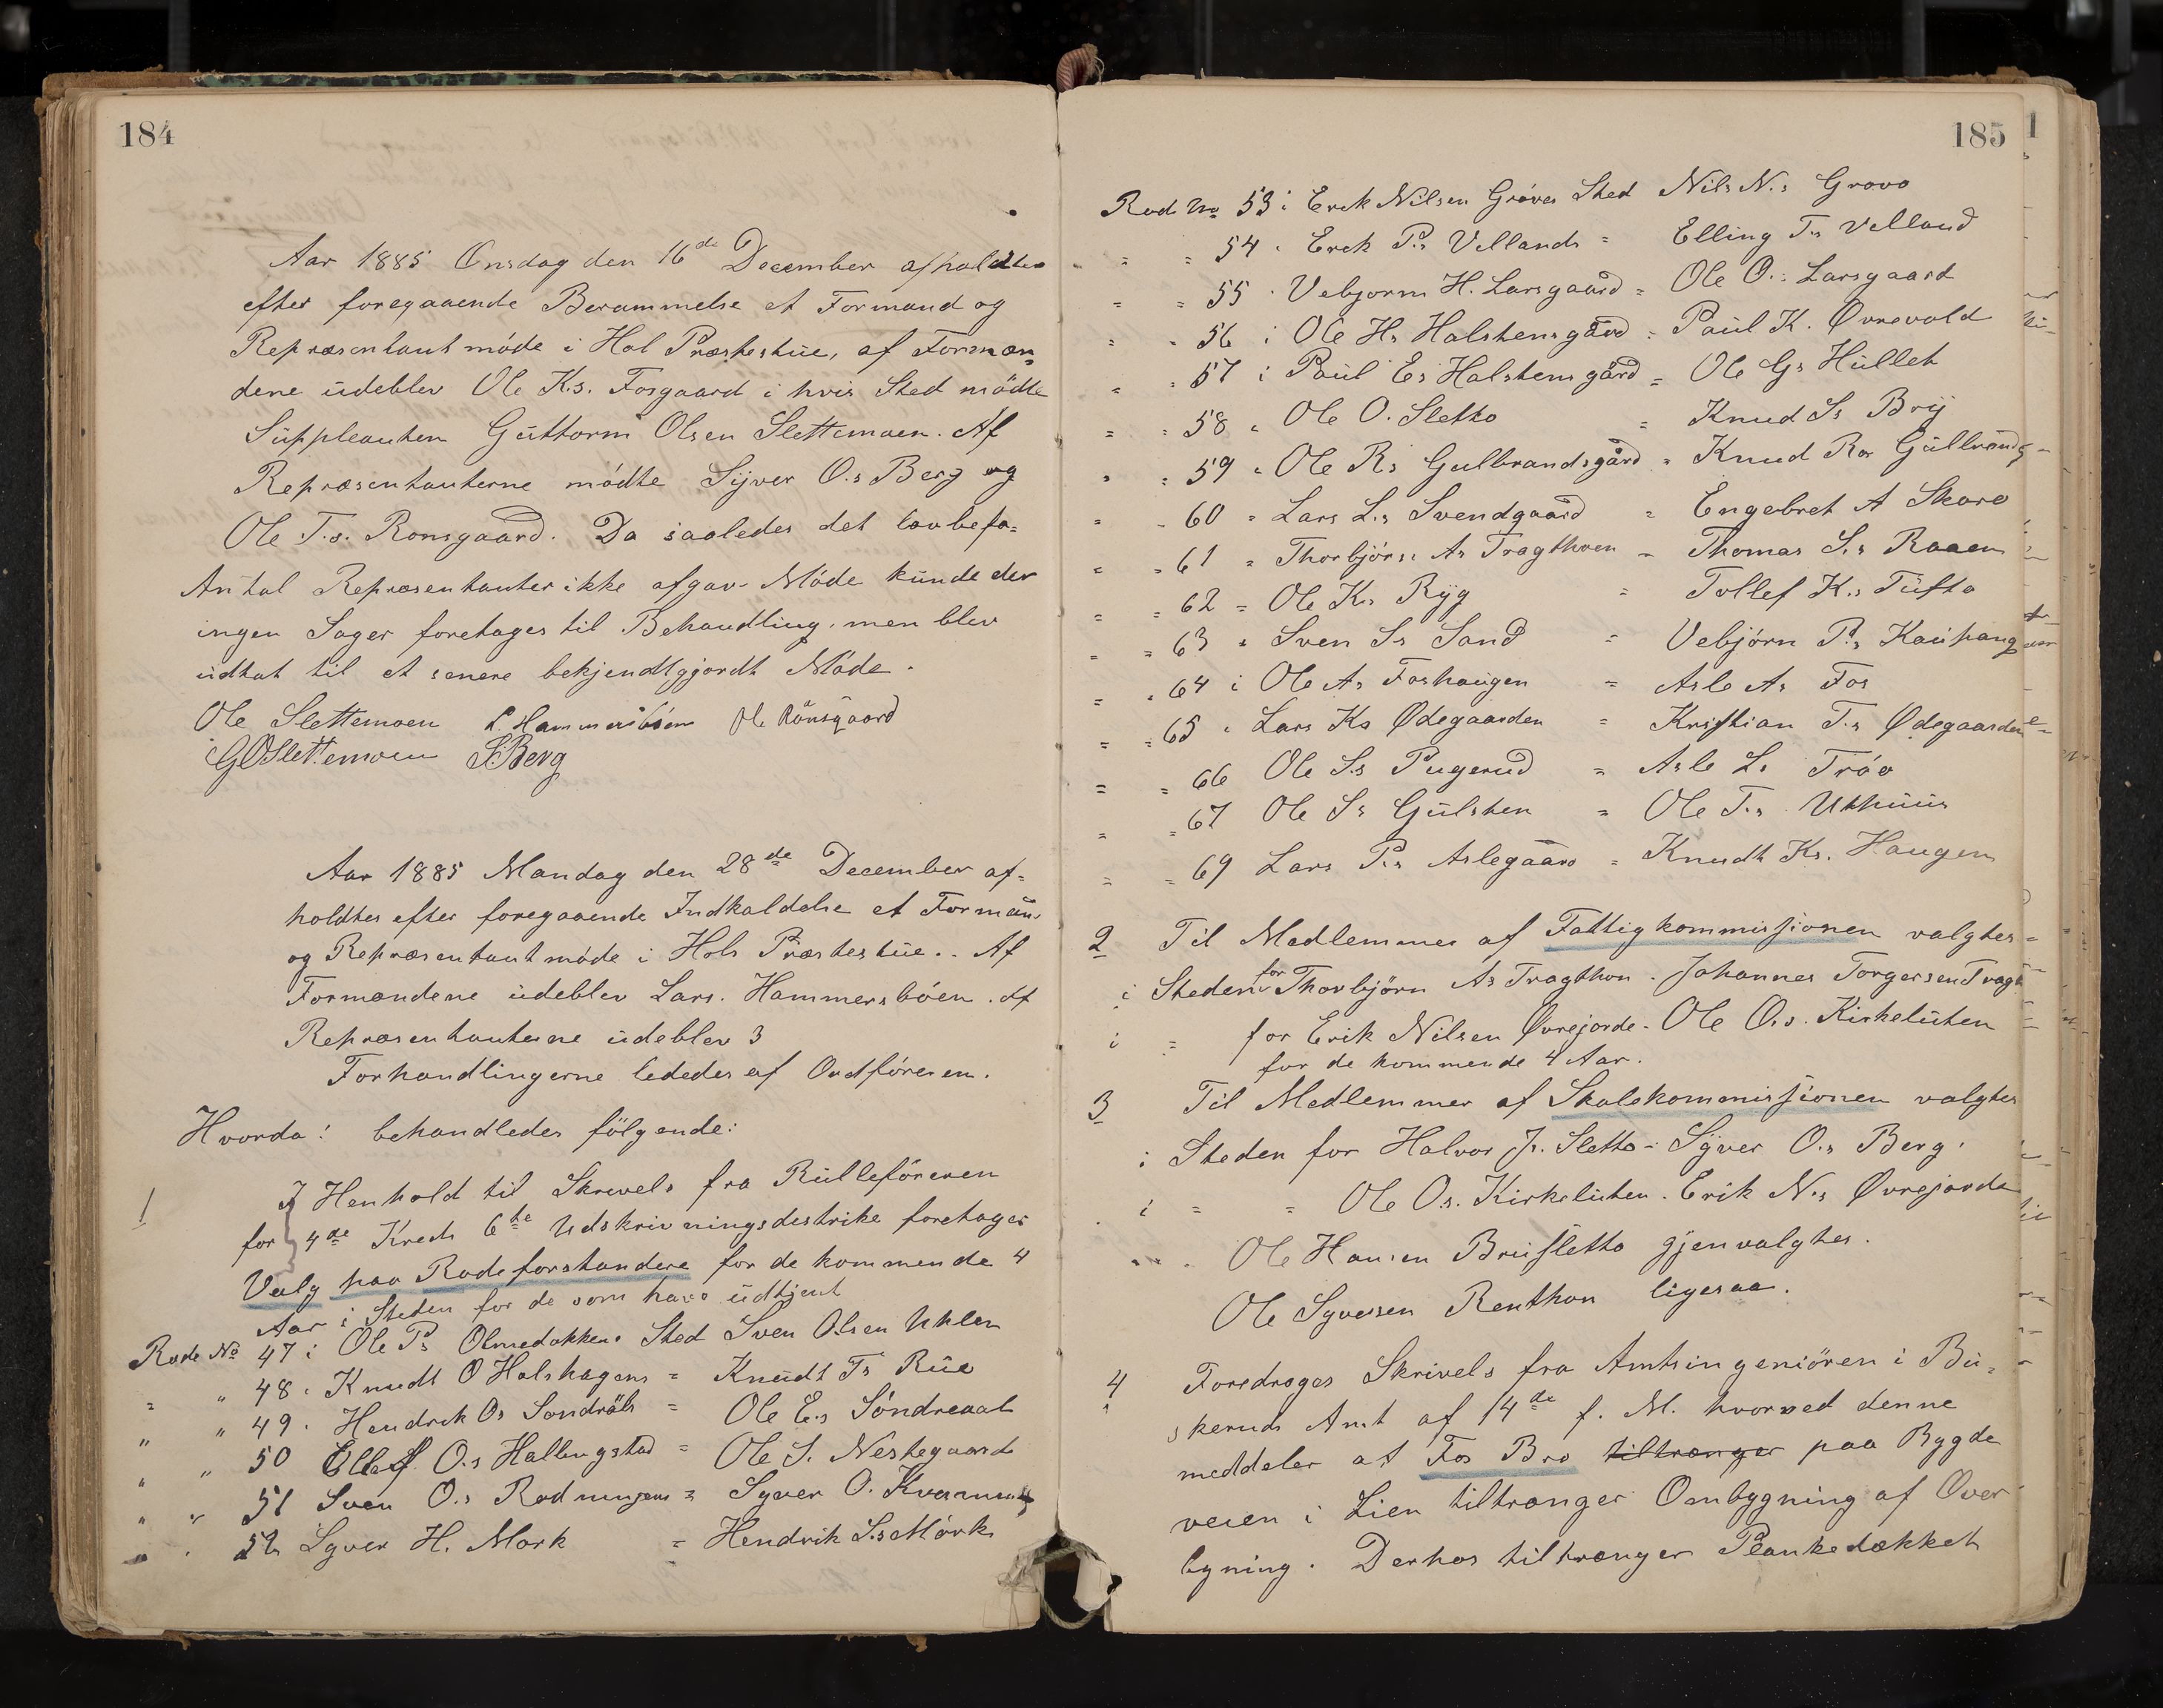 184
Aar 1885 Onsdag den 16de December afholdtes
efter foregaaende Berammelse et Formand og
Repræsentantmöde i Hol Præstestue, af Formæn-
dene udeblev Ole K.s. Fosgaard i hvis Sted mödte
Suppleanten Guttorm Olsen Slettemoen. Af
Repræsentanterne mödte Syver O.s Berg og
Ole T.s. Ronsgaard. Da saaledes det lovbefa-
Antal Repræsentanter ikke afgav Möde kunde der
ingen Sager foretages til Behandling, men blev
udsat til et senere bekjendtgjordt Möde.
Ole Slettemoen L. Hammersböen Ole Rönsgaard
GOSlettemoen S.Berg
Aar 1885 Mandag den 28de December af-
holdtes efter foregaaende Indkaldelse et Forman-
og Repræsentantmöde i Hols Præstestue.. Af
Formændene udeblev Lars. Hammersböen. Af
Repræsentanterne udeblev 3
Forhandlingerne lededes af Ordföreren.
Hvorda! behandledes fölgende:
1 I Henhold til Skrivels fra Rulleföreren
for 4de Kreds 6te Udskrivningsdestrikt foretages
Valg paa Rodeforstandere for de kommende 4
Aar i Steden for de som have udtjent
Rode No 47 i Ole P.s Olmedokken. Sted Sven Olsen Uhlen
" " 48 . Knudt O Holshagens = Knudt Ts Rue
" " 49 . Hendrik Os Sondrål = Ole E.s Söndreaal
" " 50 Ellef O.s Hallingstad = Ole S. Nestegaard
" " 51 Sven O.s = Syver O.
" " 52 Syver H. Mork = Hendrik S.s Mörk
185
Rode No 53 i Erik Nilsen Gröves Sted Nils N.s Grøvo
= = 54 . Erek P.s Vellands = Elling T.s Velland
= = 55 . Vebjorn H. Larsgaard = Ole O.s Larsgaard
= = 56 i Ole Hs Holstensgård = Paul K. Øvrevold
= = 57 i Paul Es Halstensgård = Ole Gs Hullet
= = 58 " Ole O. Sletto = Knud Ss Bry
= = 59 " Ole Rs Gulbrandsgård = Knud Rs Gullbrandsg-
= = 60 = Lars L.s Svendgaard = Engebret A Skaro
= = 61 = Thorbjörn As Tragthoen = Thomas S.s Raaen
= = 62 = Ole Ks Ryg = Tollef K.s Tufto
= = 63 = Sven Ss Sand = Vebjörn P.s Kaupang
= = 64 i Ole As Foshaugen = Asle As Fos
= = 65 . Lars Ks Ødegaarden = Kristian T.s Ødegaarden
= = 66 Ole S.s Pugerud = Asle Ls Tröo
= = 67 Ole Ss Gulsten = Ole T.s Uthuus
= = 69 Lars P.s Aslegaard = Knudt Ks. Haugen
2 Til Medlemmer af Fattigkommissionen valgtes =
i Steden for Thorbjörn As Tragthon. Johannes Torgersen Tragt
i = for Erik Nilsen Øvrejorde - Ole O.s. Kirkeluten
for de kommende 4 Aar.
3 Til Medlemmer af Skolekommissionen valgtes
i Steden for Halvor Js. Sletto - Syver O.s Berg.
i = = Ole Os. Kirkeluten. Erik N.s Øvrejorde
Ole Hansen Brusletto gjenvalgtes.
Ole Syversen Renthon ligesaa.
4 Foredroges Skrivels fra Amtsingeniören i Bu-
skeruds Amt af 14de f. M. hvorved denne
meddeler at Fos Bro tiltrænger paa Bygde
veien i Lien tiltrænger Ombygning af Over
bygning. Derhos tiltrænger Plankedækket